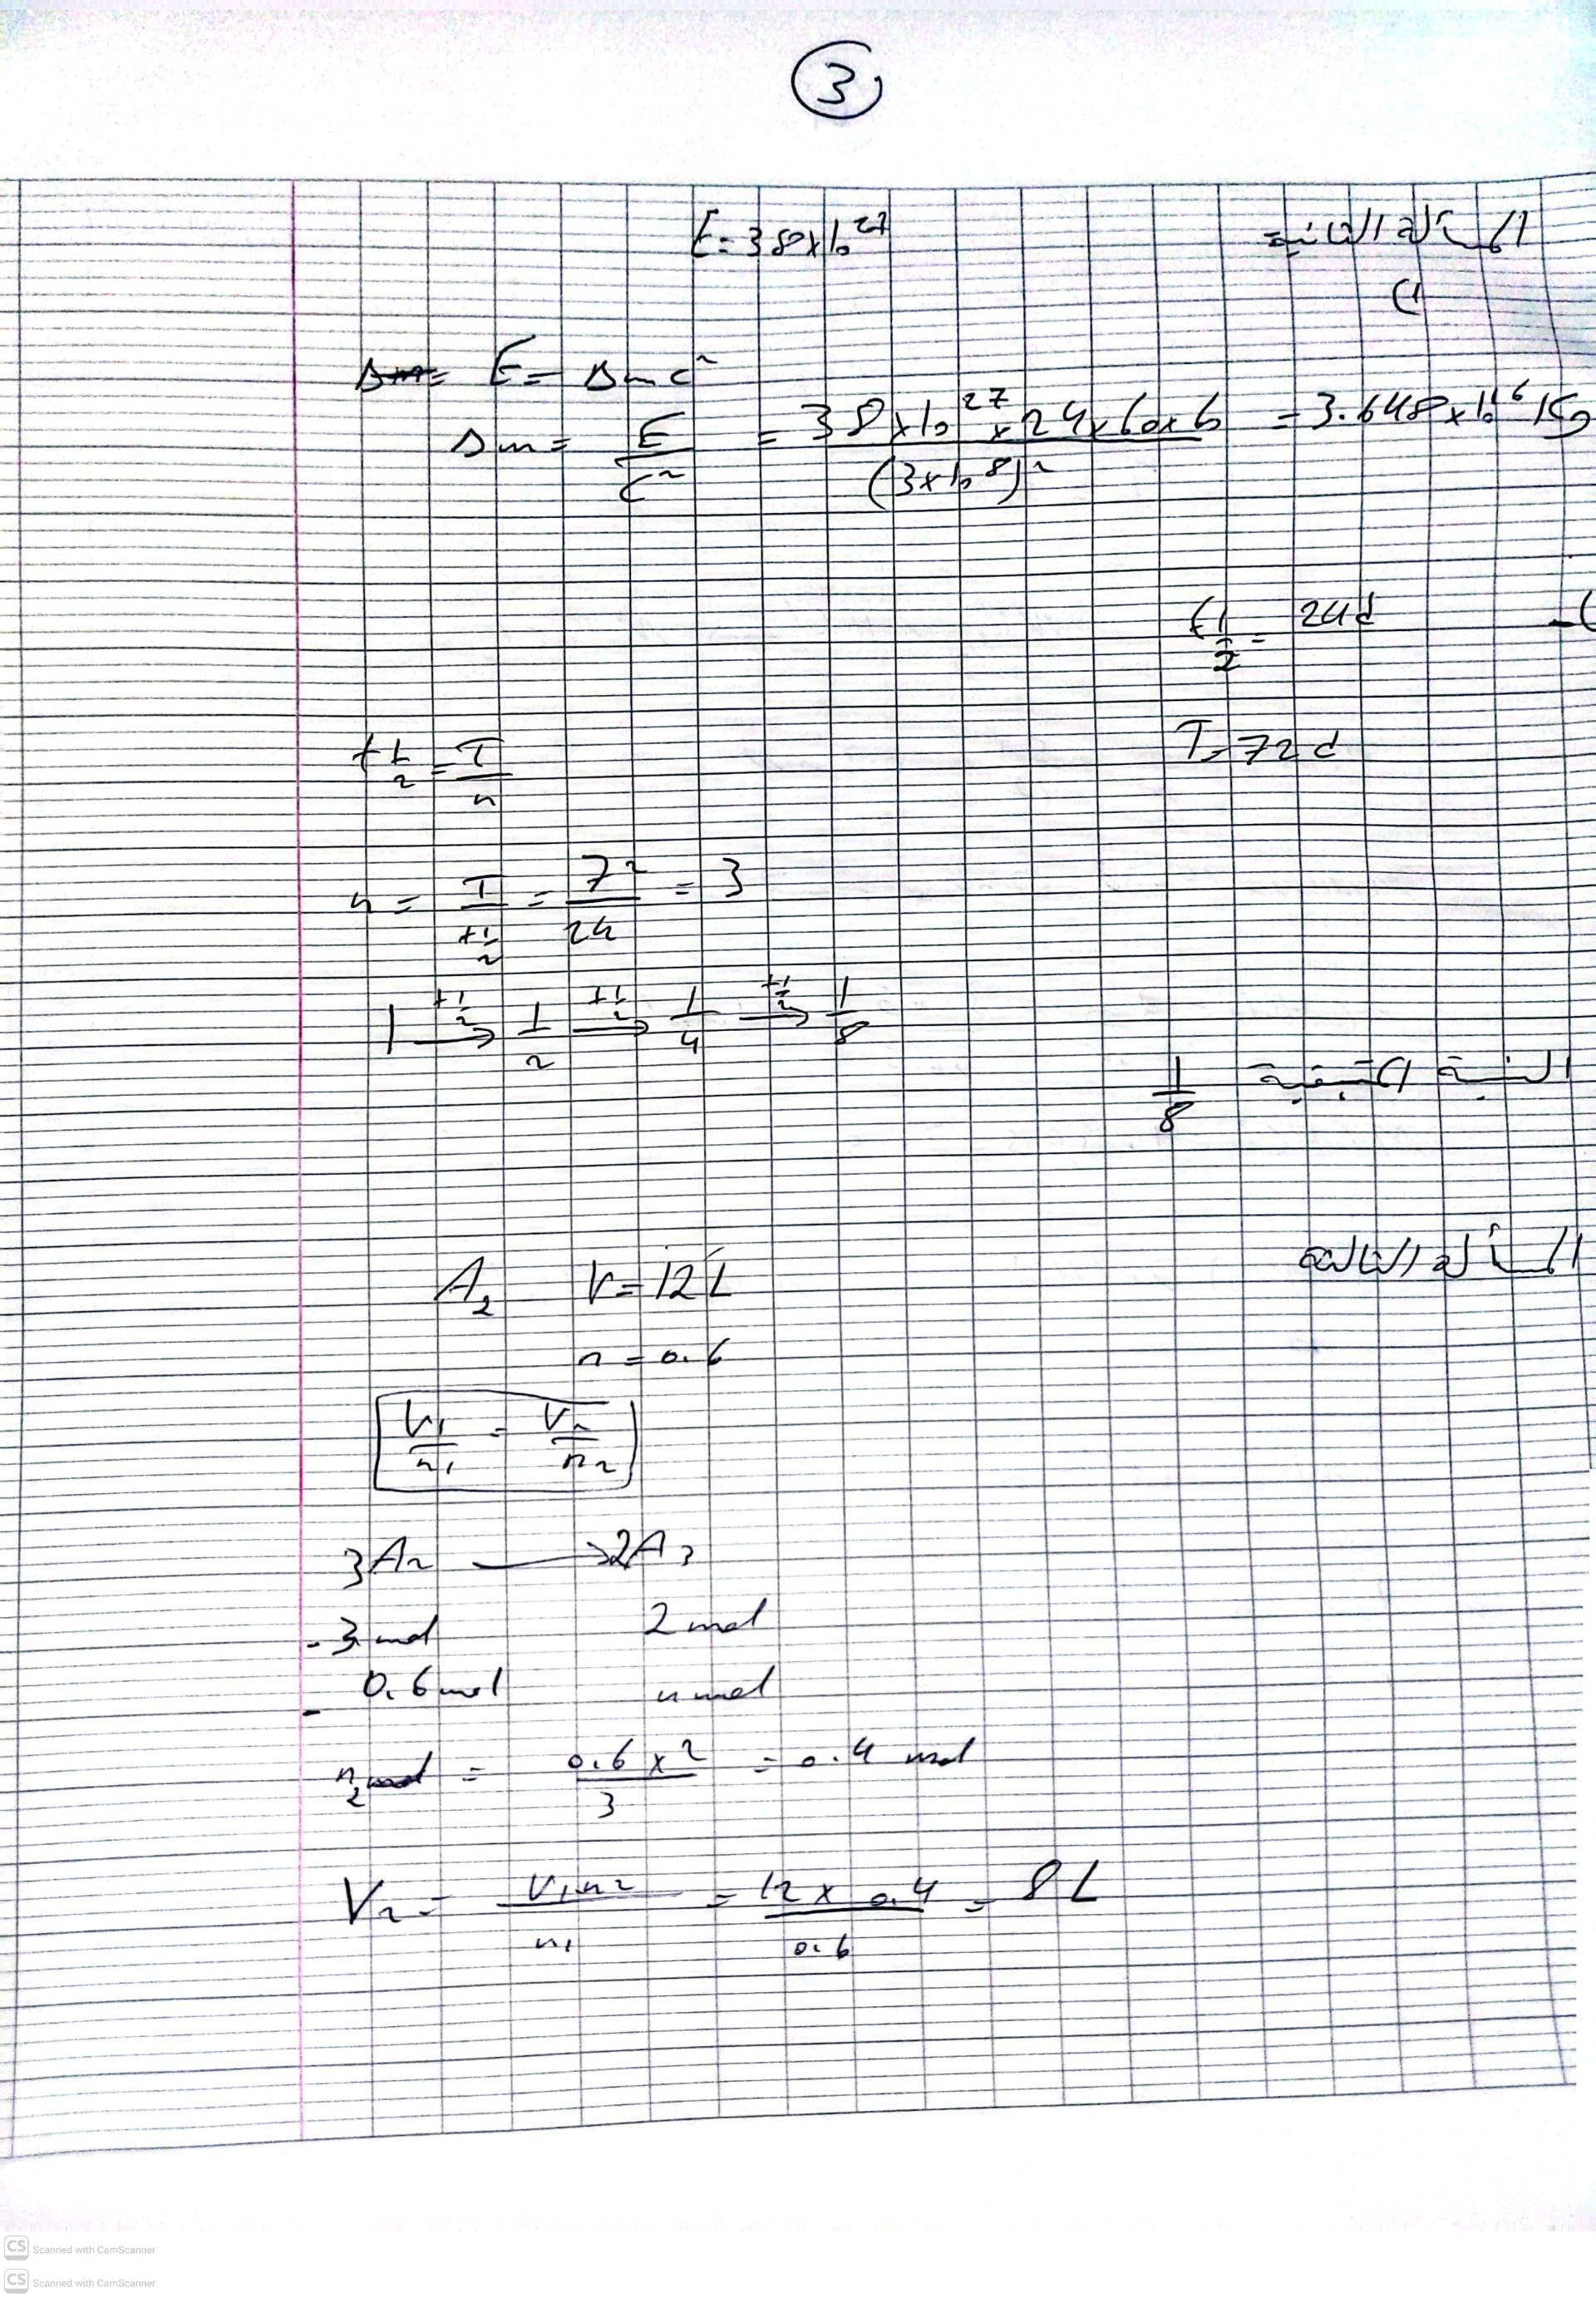 3
المسألة الثانية
E = 38 × 10²⁷
1)
E = Δmc²
Δm = E/c² = 38 × 10²⁷ × 24 × 60 × 6 / (3 × 10⁸)² = 3.648 × 10¹⁶ Kg
t½ = 24d
T = 72d
t½ = T/n
n = T/t½ = 72/24 = 3
1 →(t½) 1/2 →(t½) 1/4 →(t½) 1/8
النسبة المتبقية 1/8
المسألة الثالثة
A₂ V = 12 L
n = 0.6
V₁/n₁ = V₂/n₂
3A₂ → 2A₃
3 mol 2 mol
0.6 mol n mol
n₂ mol = 0.6 × 2 / 3 = 0.4 mol
V₂ = V₁n₂/n₁ = 12 × 0.4 / 0.6 = 8 L
CS Scanned with CamScanner
CS Scanned with CamScanner